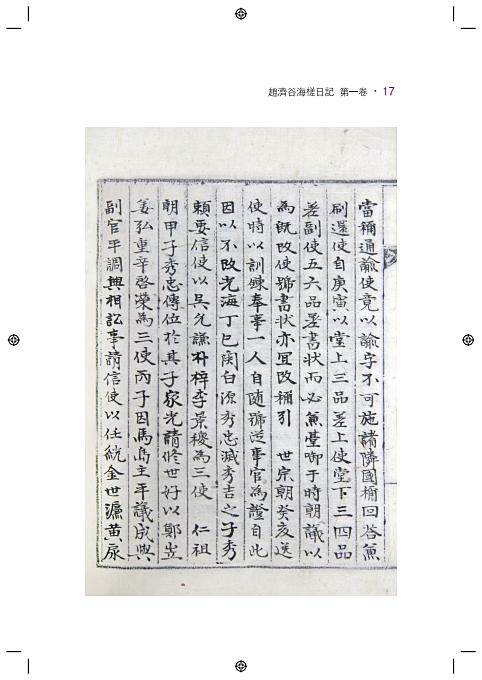 趙濟谷海槎日記 第一卷 · 17
當稱通諭使竟以諭字不可施諸隣國稱回答兼
刷還使自庚寅以堂上三品差上使堂下三四品
差副使五六品差書狀而必兼臺啣于時朝議以
為旣改使號書狀亦宜改稱引 世宗朝癸亥送
使時以訓鍊奉事一人自隨號從事官為證自此
因以不改光海丁巳関白源秀忠滅秀吉之子秀
賴要信使以吳允謙朴梓李景稷為三使 仁祖
朝甲子秀忠傳位於其子家光請修世好以鄭岦
姜弘重辛啓榮為三使丙子因馬島主平議成與
副官平調興相訟事請信使以任絖金世濂黄㦿